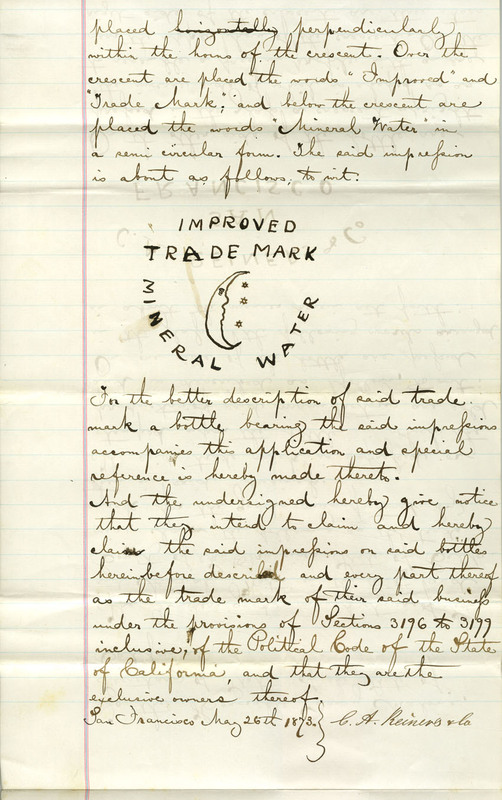 placed horizontally perpendicularly
within the horns of the crescent. Over the
crescent are placed the words "Improved" and
"Trade Mark"; and below the crescent are
placed the words "Mineral Water" in
a semi circular form. The said impression
is about as follows, to wit.
IMPROVED
TRADE MARK
MINERAL WATER
For the better description of said trade
mark a bottle bearing the said impressions
accompanies this application and special
reference is hereby made thereto.
And the undersigned hereby give notice
that they intend to claim and hereby
claim the said impressions on said bottles
hereinbefore described and every part thereof
as the trade mark of their said business
under the provisions of Sections 3196 to 3199
inclusive, of the Political Code of the State
of California, and that they are the
exclusive owners thereof.
San Francisco May 26th 1873. } C. A. Reiners & Co